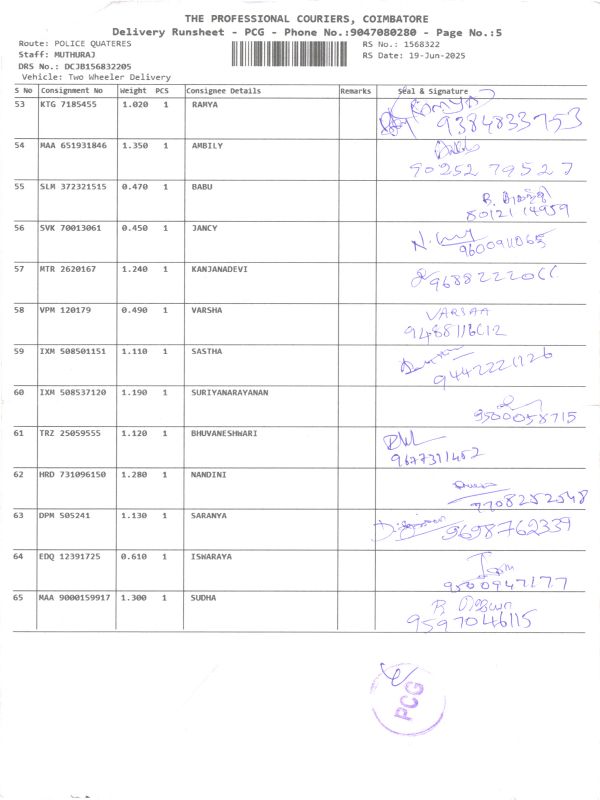 THE PROFESSIONAL COURIERS, COIMBATORE
Delivery Runsheet - PCG - Phone No.:9047080280 - Page No.:5
Route: POLICE QUATERES RS No.: 1568322
Staff: MUTHURAJ RS Date: 19-Jun-2025
DRS No.: DCJB156832205
Vehicle: Two Wheeler Delivery
S No Consignment No Weight PCS Consignee Details Remarks Seal & Signature
53 KTG 7185455 1.020 1 RAMYA
9384833753
54 MAA 651931846 1.350 1 AMBILY
90252 79527
55 SLM 372321515 0.470 1 BABU
80121 14959
56 SVK 70013061 0.450 1 JANCY
9600911065
57 MTR 2620167 1.240 1 KANJANADEVI
58 VPM 120179 0.490 1 VARSHA VARSAA
9488116612
59 IXM 508501151 1.110 1 SASTHA
9442221726
60 IXM 508537120 1.190 1 SURIYANARAYANAN
9500058715
61 TRZ 25059555 1.120 1 BHUVANESHWARI
9677311452
62 HRD 731096150 1.280 1 NANDINI
7708252548
63 DPM 505241 1.130 1 SARANYA 9698762339
64 EDQ 12391725 0.610 1 ISWARAYA
9500947177
65 MAA 9000159917 1.300 1 SUDHA
9597046115
PCG